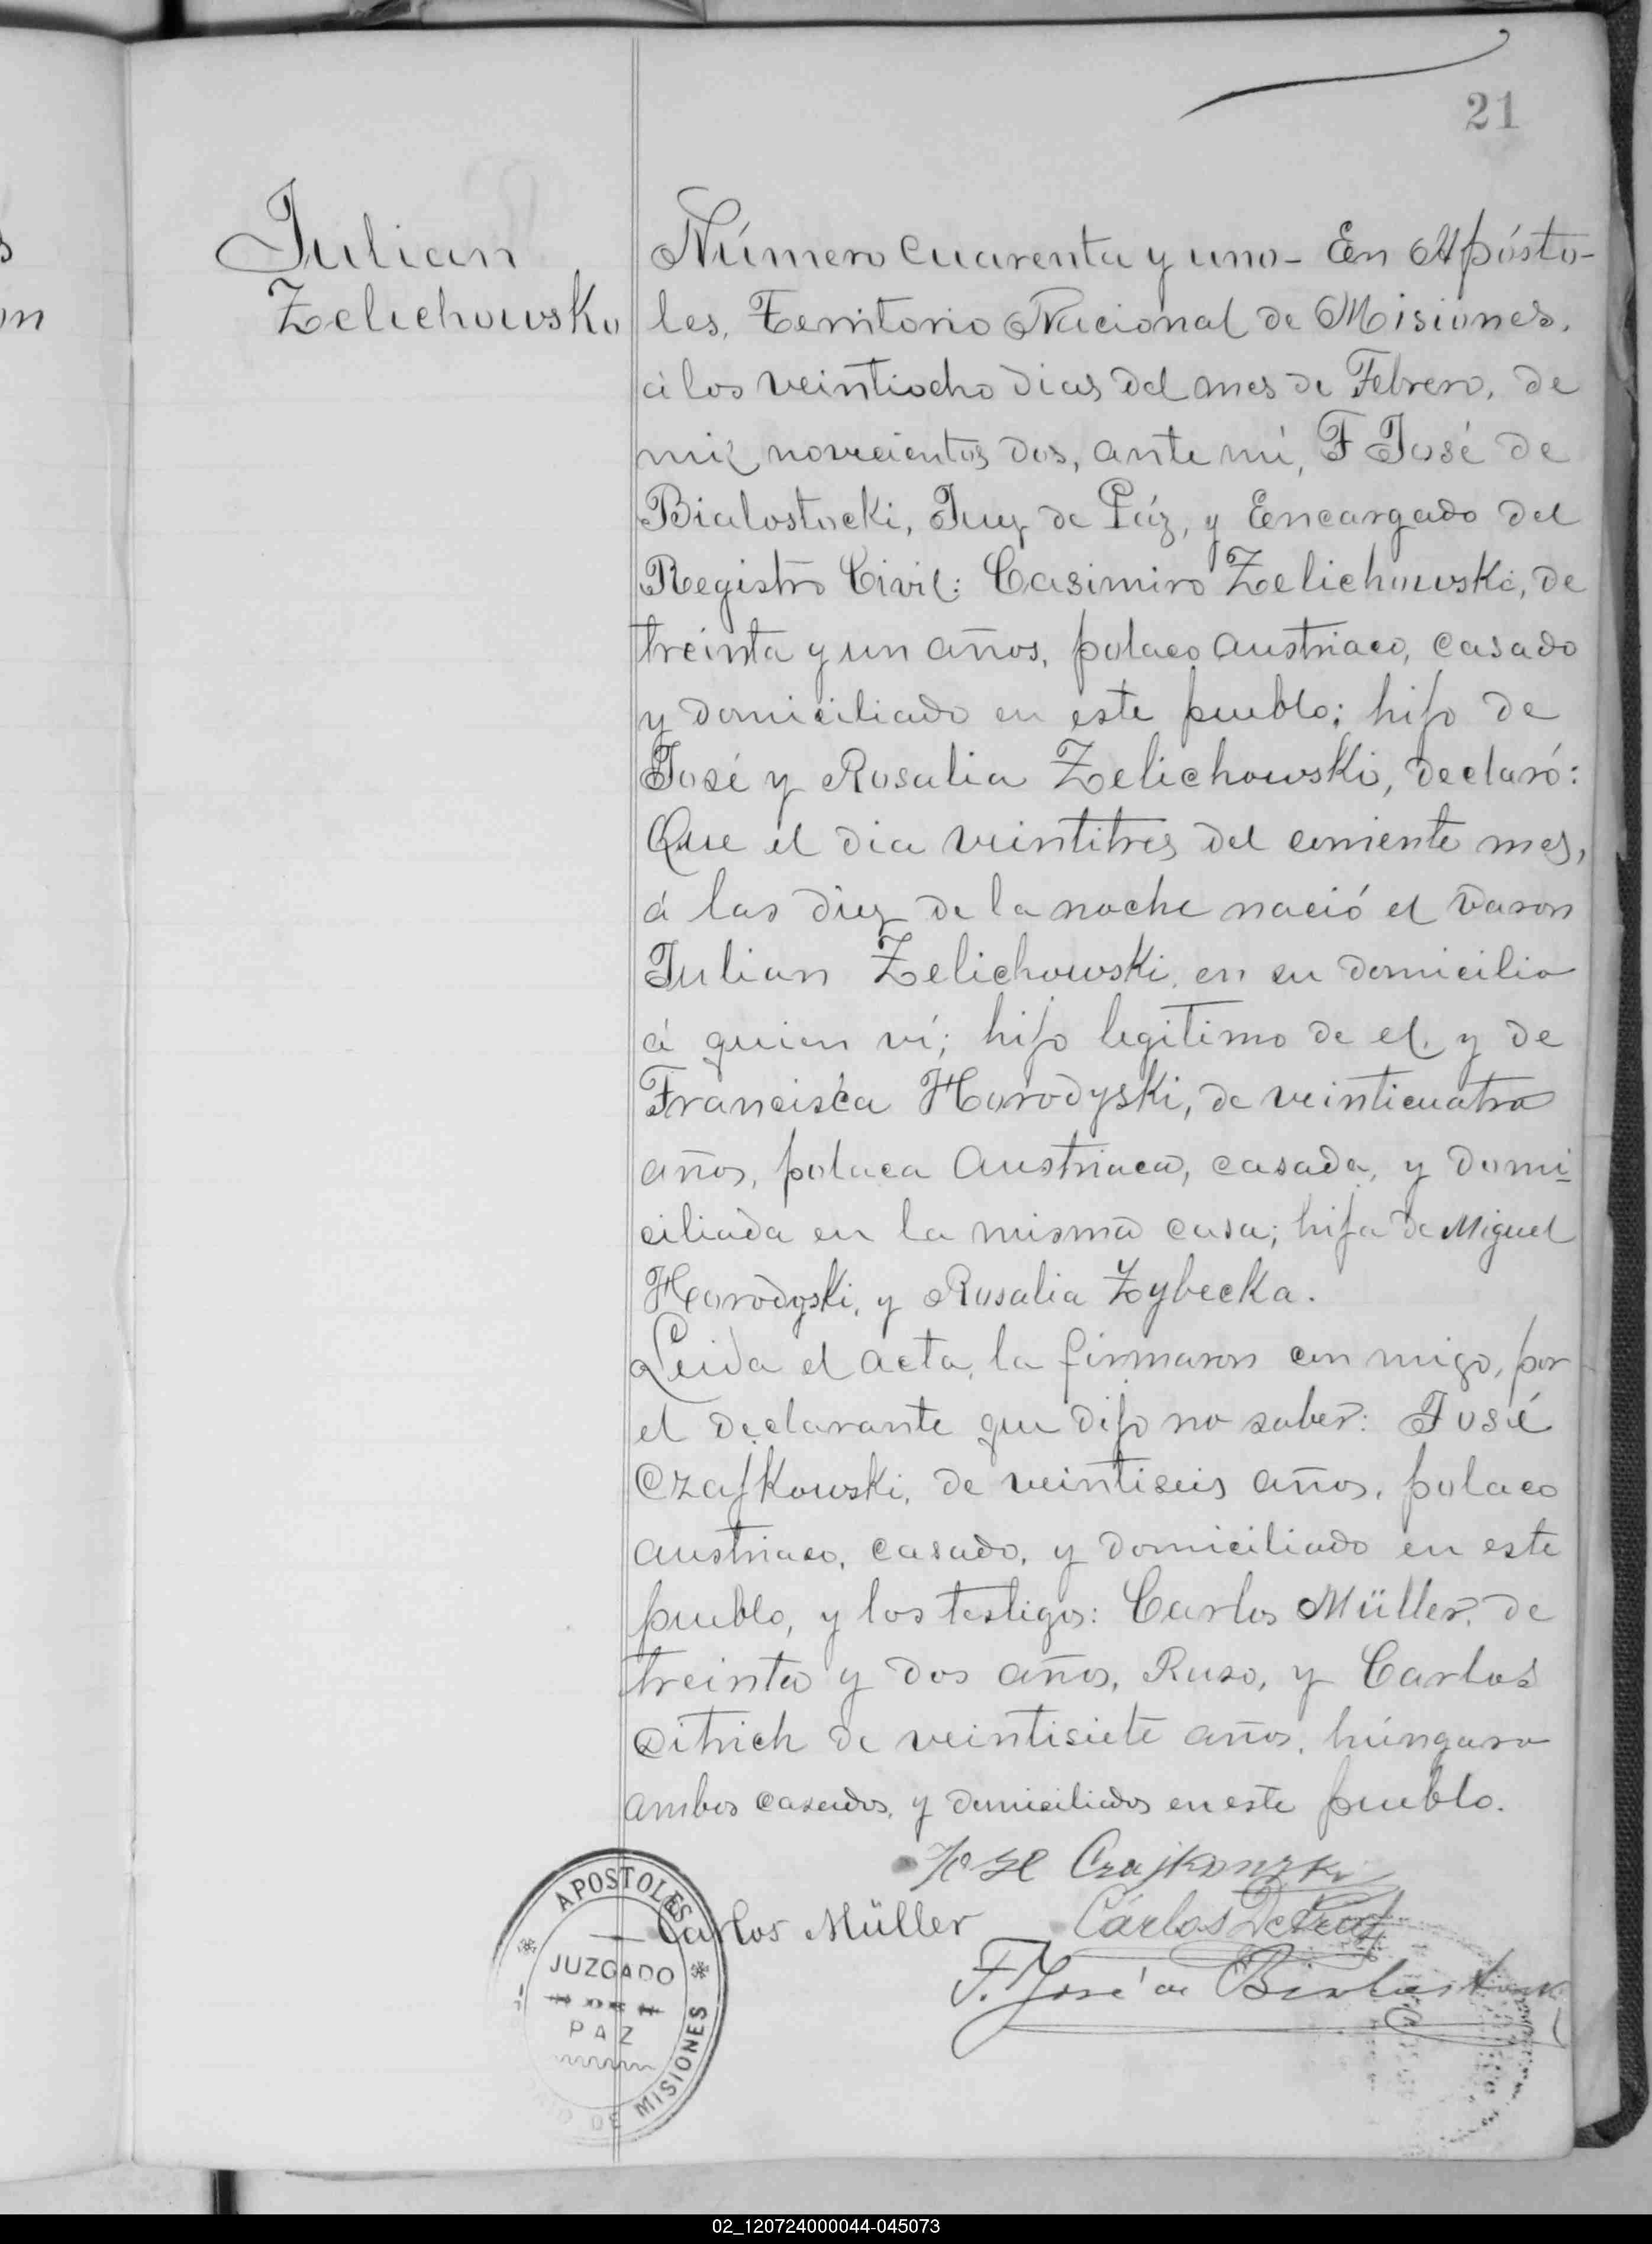 21
Julian
Zelichowski
Número cuarenta y uno- En Apósto-
les, Territorio Nacional de Misiones,
á los veintiocho dias del mes de Febrero, de
mil novecientos dos, ante mí, F José de
Bialostocki, Juez de Páz, y Encargado del
Registro Civil: Casimiro Zelichowski, de
treinta y un años, polaco austriaco, casado
y domiciliado en este pueblo; hijo de
José y Rosalia Zelichowski, declaró:
Que el dia veintitres del corriente mes,
á las diez de la noche nació el varon
Julian Zelichowski, en su domicilio
á quien ví; hijo legitimo de el, y de
Francisca Horodyski, de veinticuatro
años, polaca austriaca, casada, y domi-
ciliada en la misma casa; hija de Miguel
Horodyski, y Rosalia Zybecka.
Leida el acta, la firmaron con migo, por
el declarante que dijo no saber: José
Czajkowski, de veintiseis años, polaco
austriaco, casado, y domiciliado en este
pueblo, y los testigos: Carlos Müller, de
treinta y dos años, Ruso, y Carlos
Ditrich de veintisiete años, húngaro
ambos casados, y domiciliados en este pueblo.
José Czajkowski
Carlos Müller Cárlos
F. José de Bialostocki
APOSTOLES
JUZGADO
DE
PAZ
DE MISIONES
02_120724000044-045073